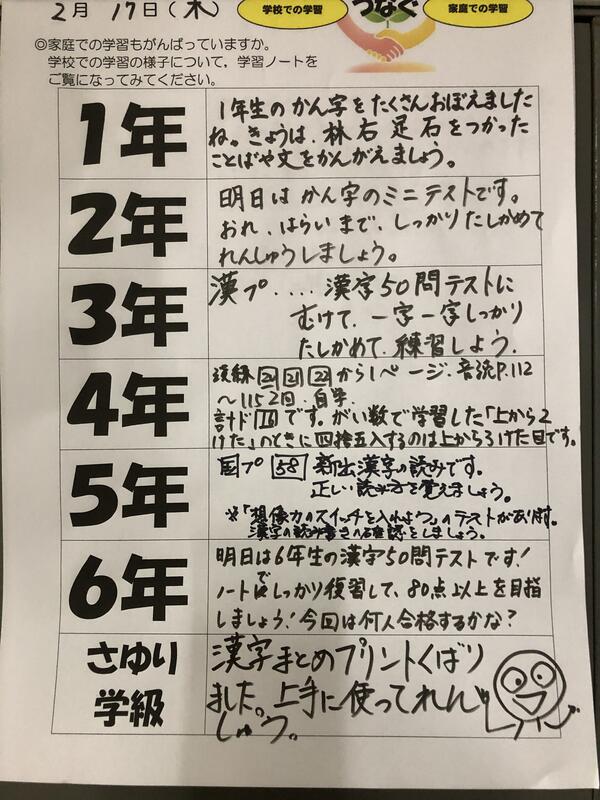 2月 17日(木)
学校での学習
つなぐ
家庭での学習
◎家庭での学習もがんばっていますか。
学校での学習の様子について，学習ノートを
ご覧になってみてください。
1年
1年生のかん字をたくさんおぼえました
ね。きょうは、林右足石をつかった
ことばや文をかんがえましょう。
2年
明日はかん字のミニテストです。
おれ、はらいまで、しっかりたしかめて
れんしゅうしましょう。
3年
漢プ....漢字50問テストに
むけて、一字一字しっかり
たしかめて、練習しよう。
4年
21 22から1ページ、音読P.112
〜115 2回、自学
計ド16です。がい数で学習した「上から2
けた」のときに四捨五入するのは上から3けた目です。
5年
国プ 58 新出漢字の読みです。
正しい読み方を覚えましょう。
※「想像力のスイッチを入れよう」のテストがあります。
漢字の読み書きの確認をしましょう。
6年
明日は6年生の漢字50問テストです!
ノートでしっかり復習して、80点以上を目指
しましょう!今回は何人合格するかな?
さゆり
学級
漢字まとめプリントくばり
ました。上手に使ってれん
しゅう。